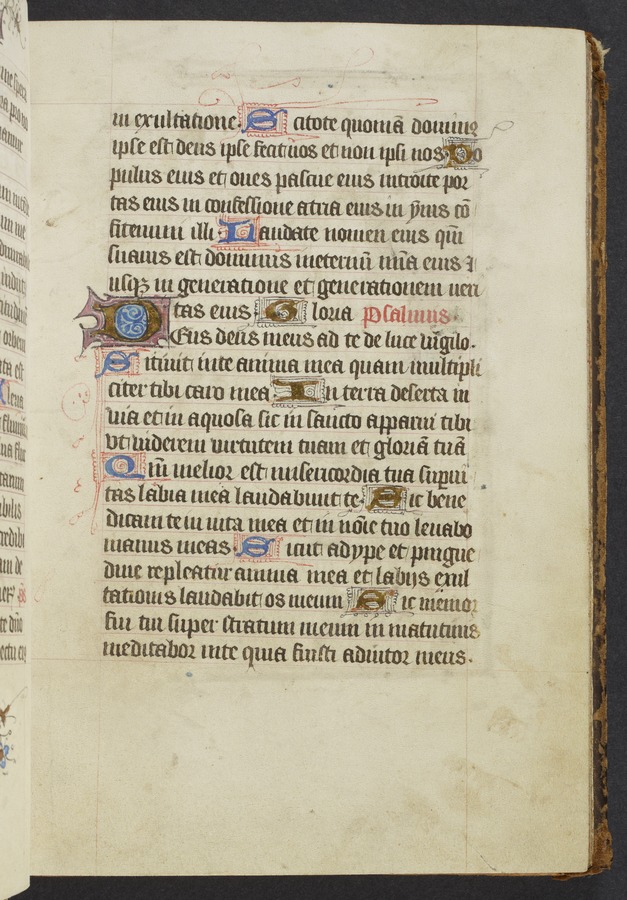 in exultatione Scitote quoniā dominus
ipse est deus ipse fecit nos et non ipsi nos Po
pulus eius et oues pascue eius introite por
tas eius in confessione atria eius in ymnis cō
fitemini illi Laudate nomen eius qm̄
suauis est dominus ineternū mīa eius ⁊
usqꝫ in generatione et generationem ueri
tas eius Gloria Psalmus
Deus deus meus ad te de luce uigilo.
Sitiuit inte anima mea quam multipli
citer tibi caro mea In terra deserta in
uia et in aquosa sic in sancto apparui tibi
vt uiderem uirtutem tuam et gloriā tuā
Qm̄ melior est misericordia tua super ui
tas labia mea laudabunt te Sic bene
dicam te in uita mea et in noīe tuo leuabo
manus meas Sicut adype et pingue
dine repleatur anima mea et labijs exul
tationis laudabit os meum Sic memor
fui tui super stratum meum in matutinis
meditabor inte quia fuisti adiutor meus.